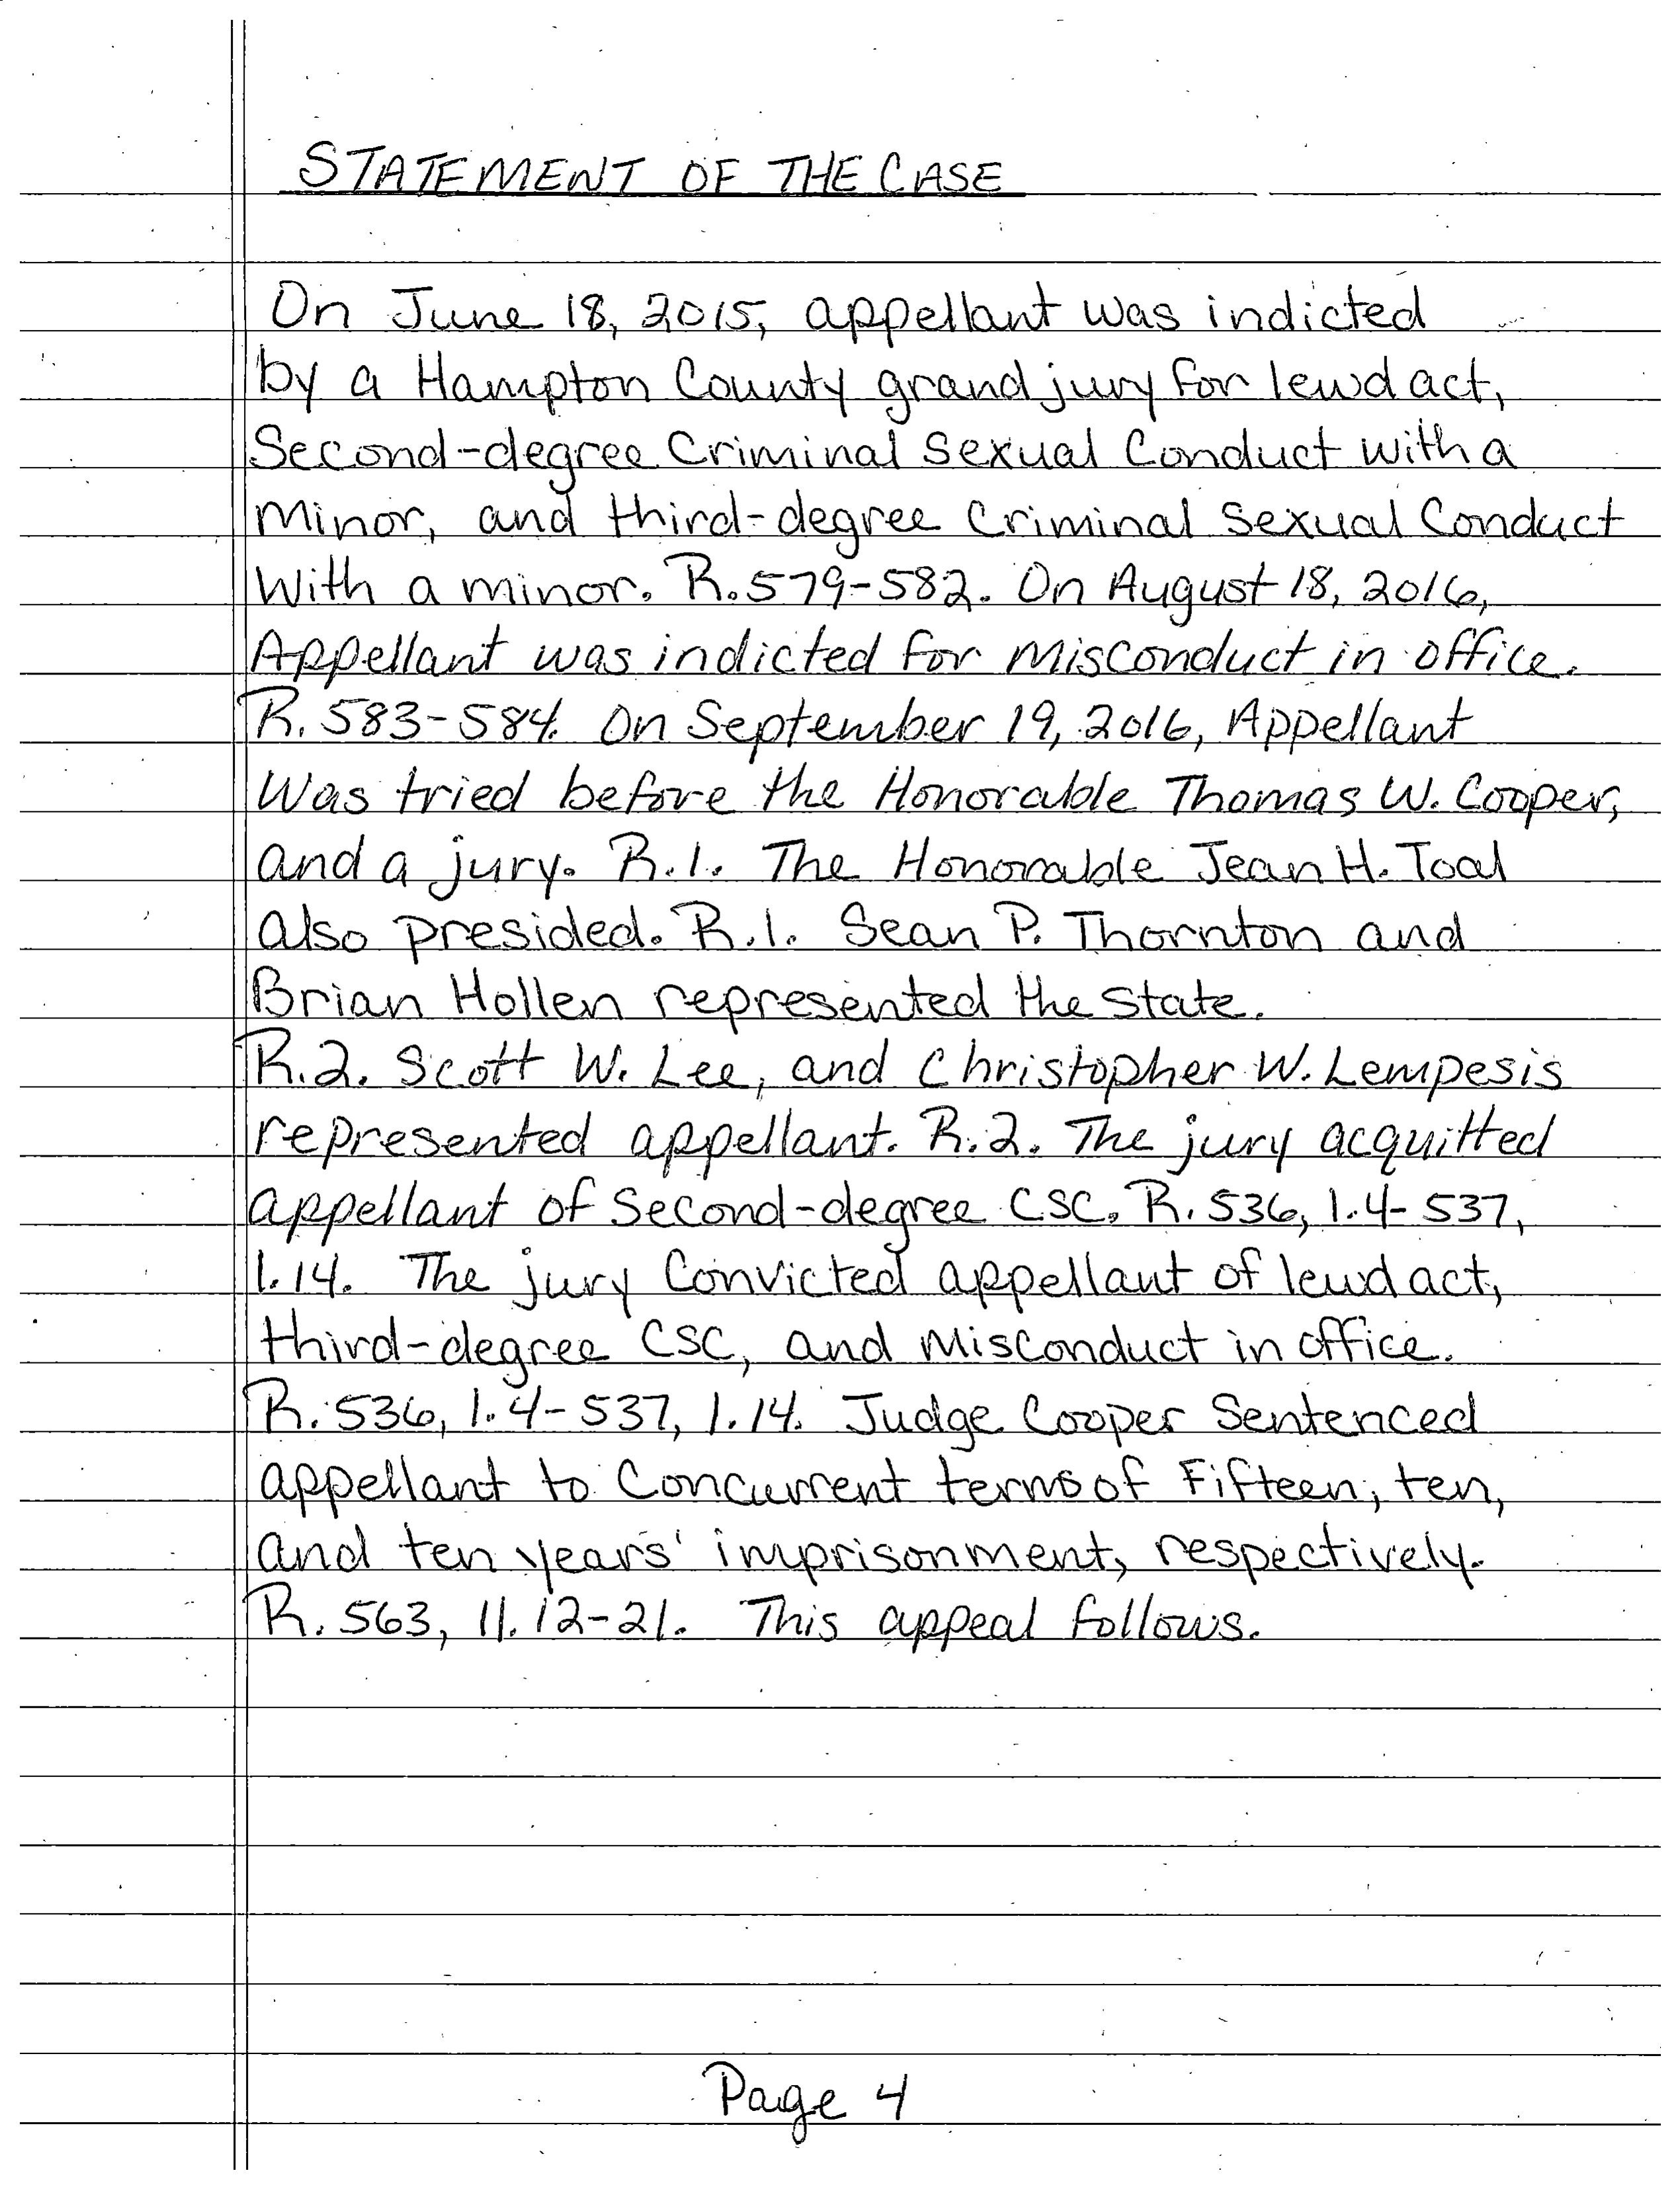 STATEMENT OF THE CASE
On June 18, 2015, appellant was indicted
by a Hampton County grand jury for lewd act,
Second-degree Criminal Sexual Conduct with a
Minor, and third-degree Criminal Sexual Conduct
With a minor. R.579-582. On August 18, 2016,
Appellant was indicted for Misconduct in office.
R. 583-584. On September 19, 2016, Appellant
Was tried before the Honorable Thomas W. Cooper,
and a jury. R.1. The Honorable Jean H. Toal
also presided. R.1. Sean P. Thornton and
Brian Hollen represented the State.
R.2. Scott W. Lee, and Christopher W. Lempesis
represented appellant. R.2. The jury acquitted
appellant of Second-degree CSC. R. 536, l.4-537,
l.14. The jury Convicted appellant of lewd act,
third-degree CSC, and Misconduct in office.
R. 536, l.4-537, l.14. Judge Cooper Sentenced
appellant to Concurrent terms of Fifteen, ten,
and ten years' imprisonment, respectively.
R. 563, ll. 12-21. This appeal follows.
Page 4